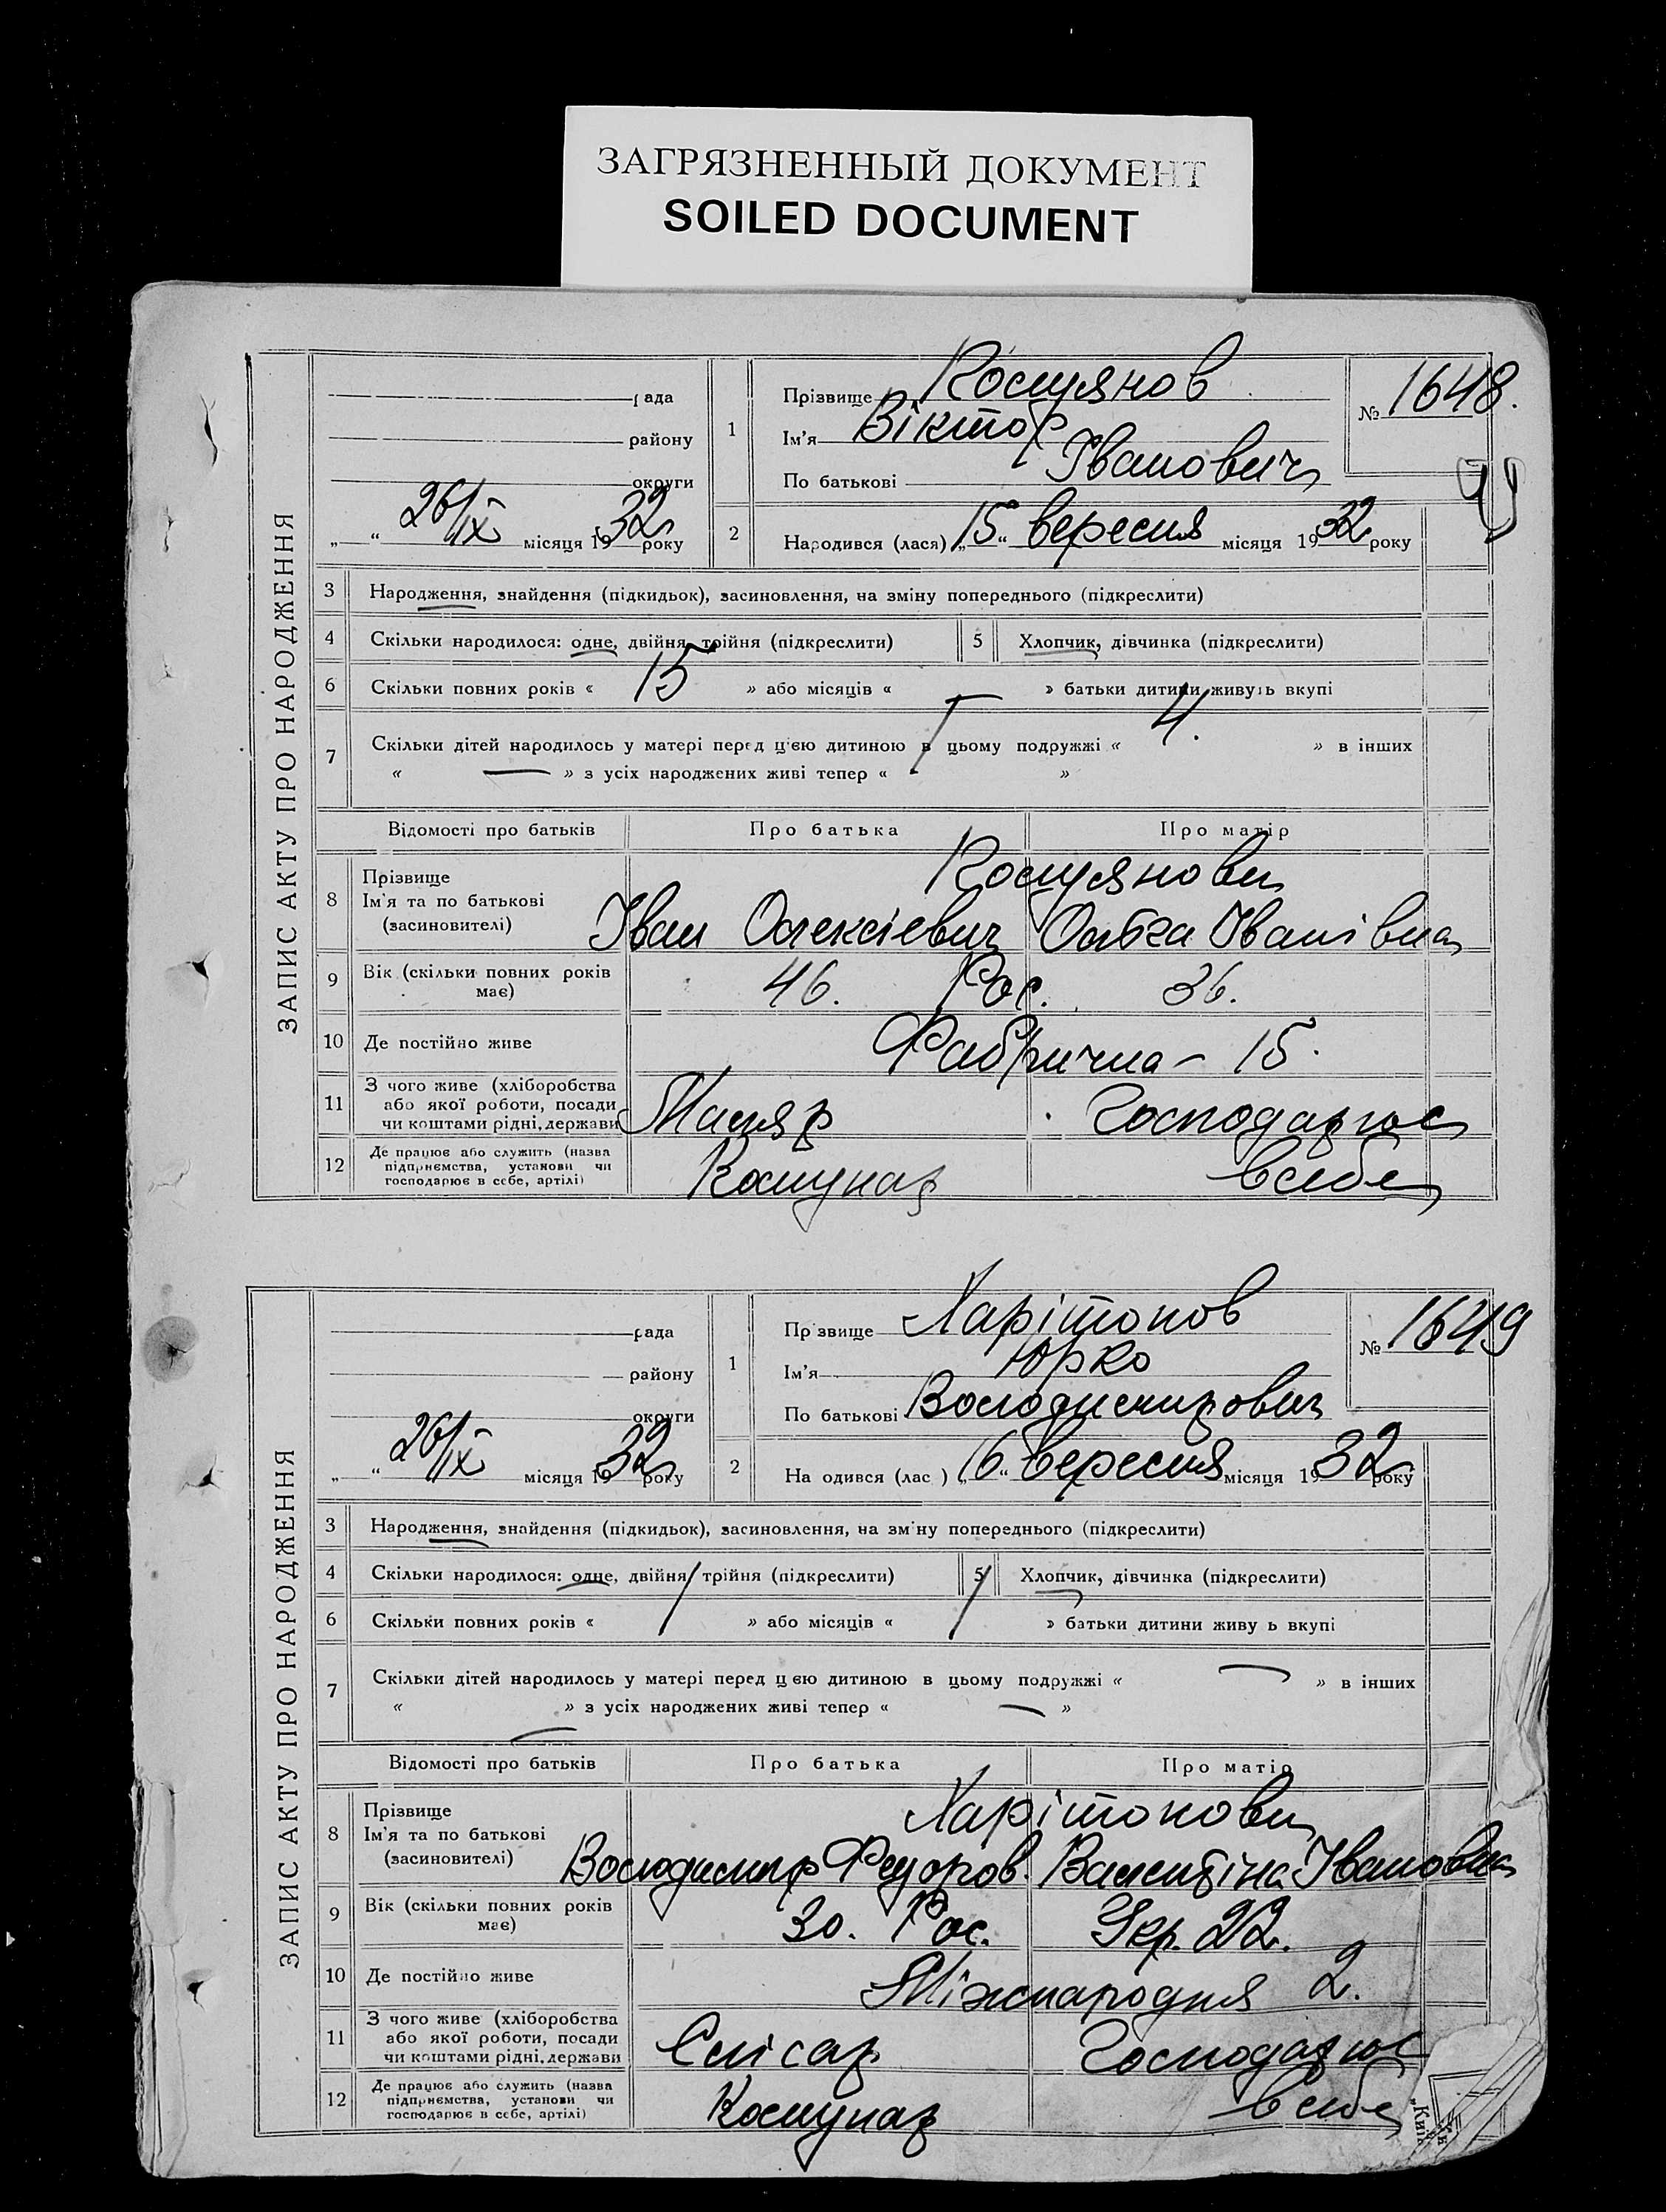 ЗАГРЯЗНЕННЫЙ ДОКУМЕНТ
SOILED DOCUMENT
ЗАПИС АКТУ ПРО НАРОДЖЕННЯ
рада
району
округи
„ “ 26/IX місяця 1932 року
1
Прізвище
Ім'я Віктор
По батькові Іванович
№ 1648.
2
Народився (лася) „15“ вересня місяця 1932 року
3 Народження, знайдення (підкидьок), засиновлення, на зміну попереднього (підкреслити)
4 Скільки народилося: одне, двійня, трійня (підкреслити)
5 Хлопчик, дівчинка (підкреслити)
6 Скільки повних років « 15 » або місяців « — » батьки дитини живуть вкупі
7 Скільки дітей народилось у матері перед цією дитиною в цьому подружжі « 4. » в інших
« — » з усіх народжених живі тепер « »
Відомості про батьків
Про батька
Про матір
8 Прізвище
Ім'я та по батькові
(засиновителі)
Іван Олексієвич Ольга Іванівна
9 Вік (скільки повних років має)
46. Рос. 36.
10 Де постійно живе
Фабрична – 15.
11 З чого живе (хліборобства
або якої роботи, посади
чи коштами рідні, держави
Маляр Господарює
12 Де працює або служить (назва
підприємства, установи чи
господарює в себе, артілі)
Комунар в себе
ЗАПИС АКТУ ПРО НАРОДЖЕННЯ
рада
району
округи
„ “ 26/IX місяця 1932 року
1
Пр звище Харітонов
Ім'я Юрко
По батькові Володимирович
№ 1649
2
На одився (лас ) „16“ вересня місяця 1932 року
3 Народження, знайдення (підкидьок), засиновлення, на зм ну попереднього (підкреслити)
4 Скільки народилося: одне, двійня, трійня (підкреслити)
5 Хлопчик, дівчинка (підкреслити)
6 Скільки повних років « / » або місяців « / » батьки дитини живу ь вкупі
7 Скільки дітей народилось у матері перед ц єю дитиною в цьому подружжі « — » в інших
« — » з усіх народжених живі тепер « — »
Відомості про батьків
Про батька
Про матір
8 Прізвище
Ім'я та по батькові
(засиновителі)
Харітонови
Володимир Федоров. Валентіна Івановна
9 Вік (скільки повних років має)
30. Рос. Укр. 22.
10 Де постійно живе
Міжнародня 2.
11 З чого живе (хліборобства
або якої роботи, посади
чи коштами рідні, держави
Слісар Господарює
12 Де працює або служить (назва
підприємства, установи чи
господарює в себе, артілі)
Комунар в себе
„Київ